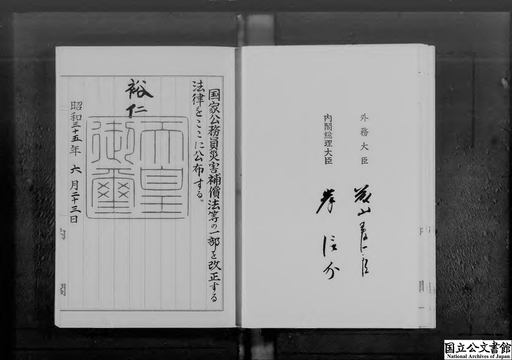 外務大臣 藤山愛一郎
内閣総理大臣 岸信介
国家公務員災害補償法等の一部を改正する
法律をここに公布する。
裕仁
天皇
御璽
昭和三十五年 六月二十三日
内閣
国立公文書館
National Archives of Japan